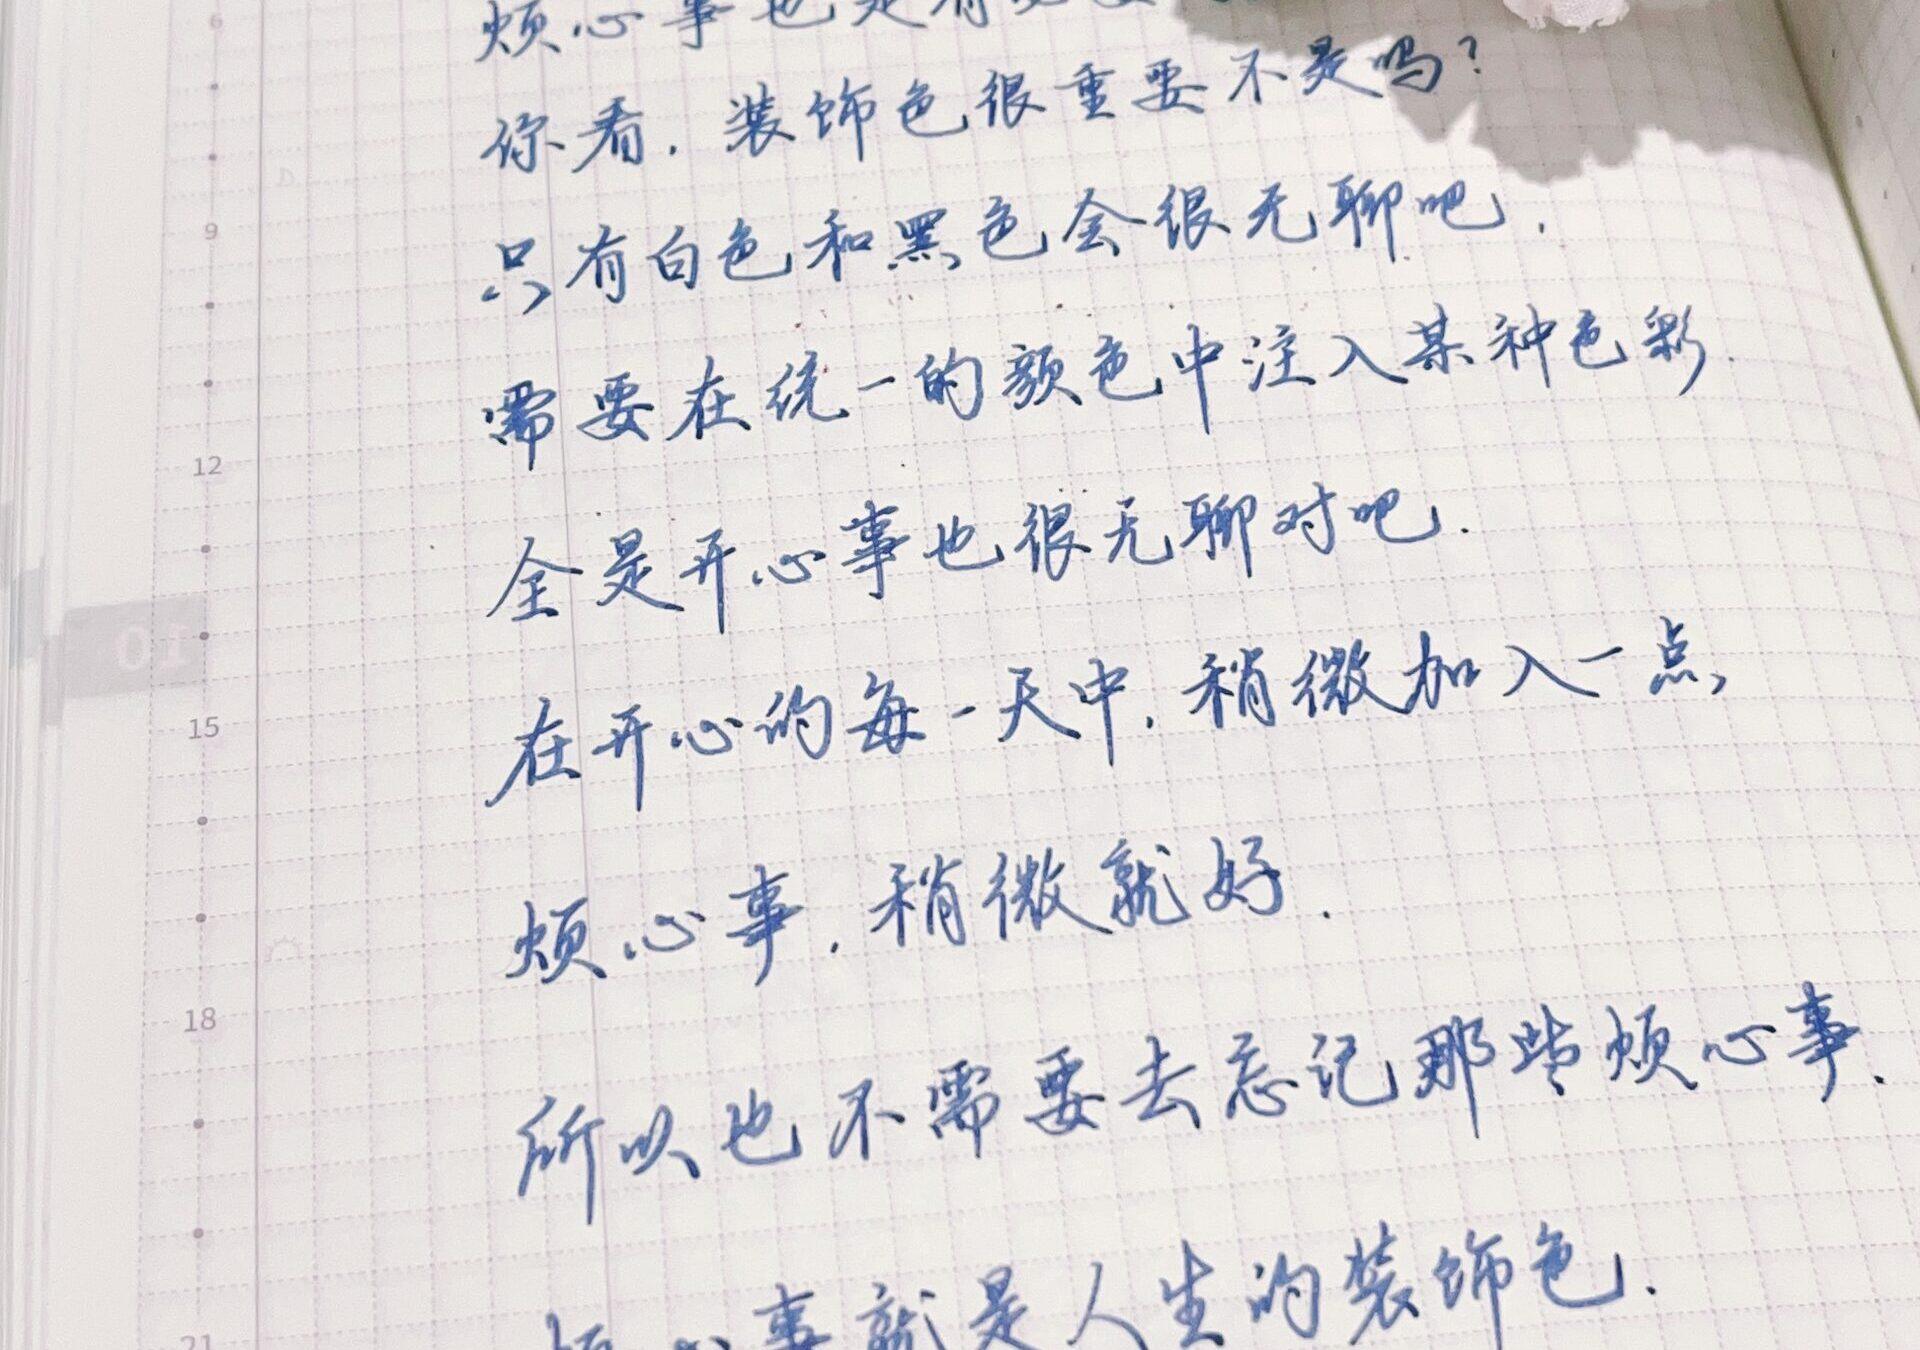 烦心事也是有必要
你看.装饰色很重要不是吗?
只有白色和黑色会很无聊吧.
需要在统一的颜色中注入某种色彩.
全是开心事也很无聊对吧.
在开心的每一天中.稍微加入一点
烦心事.稍微就好.
所以也不需要去忘记那些烦心事.
烦心事就是人生的装饰色.
6
9
12
10
15
18
21